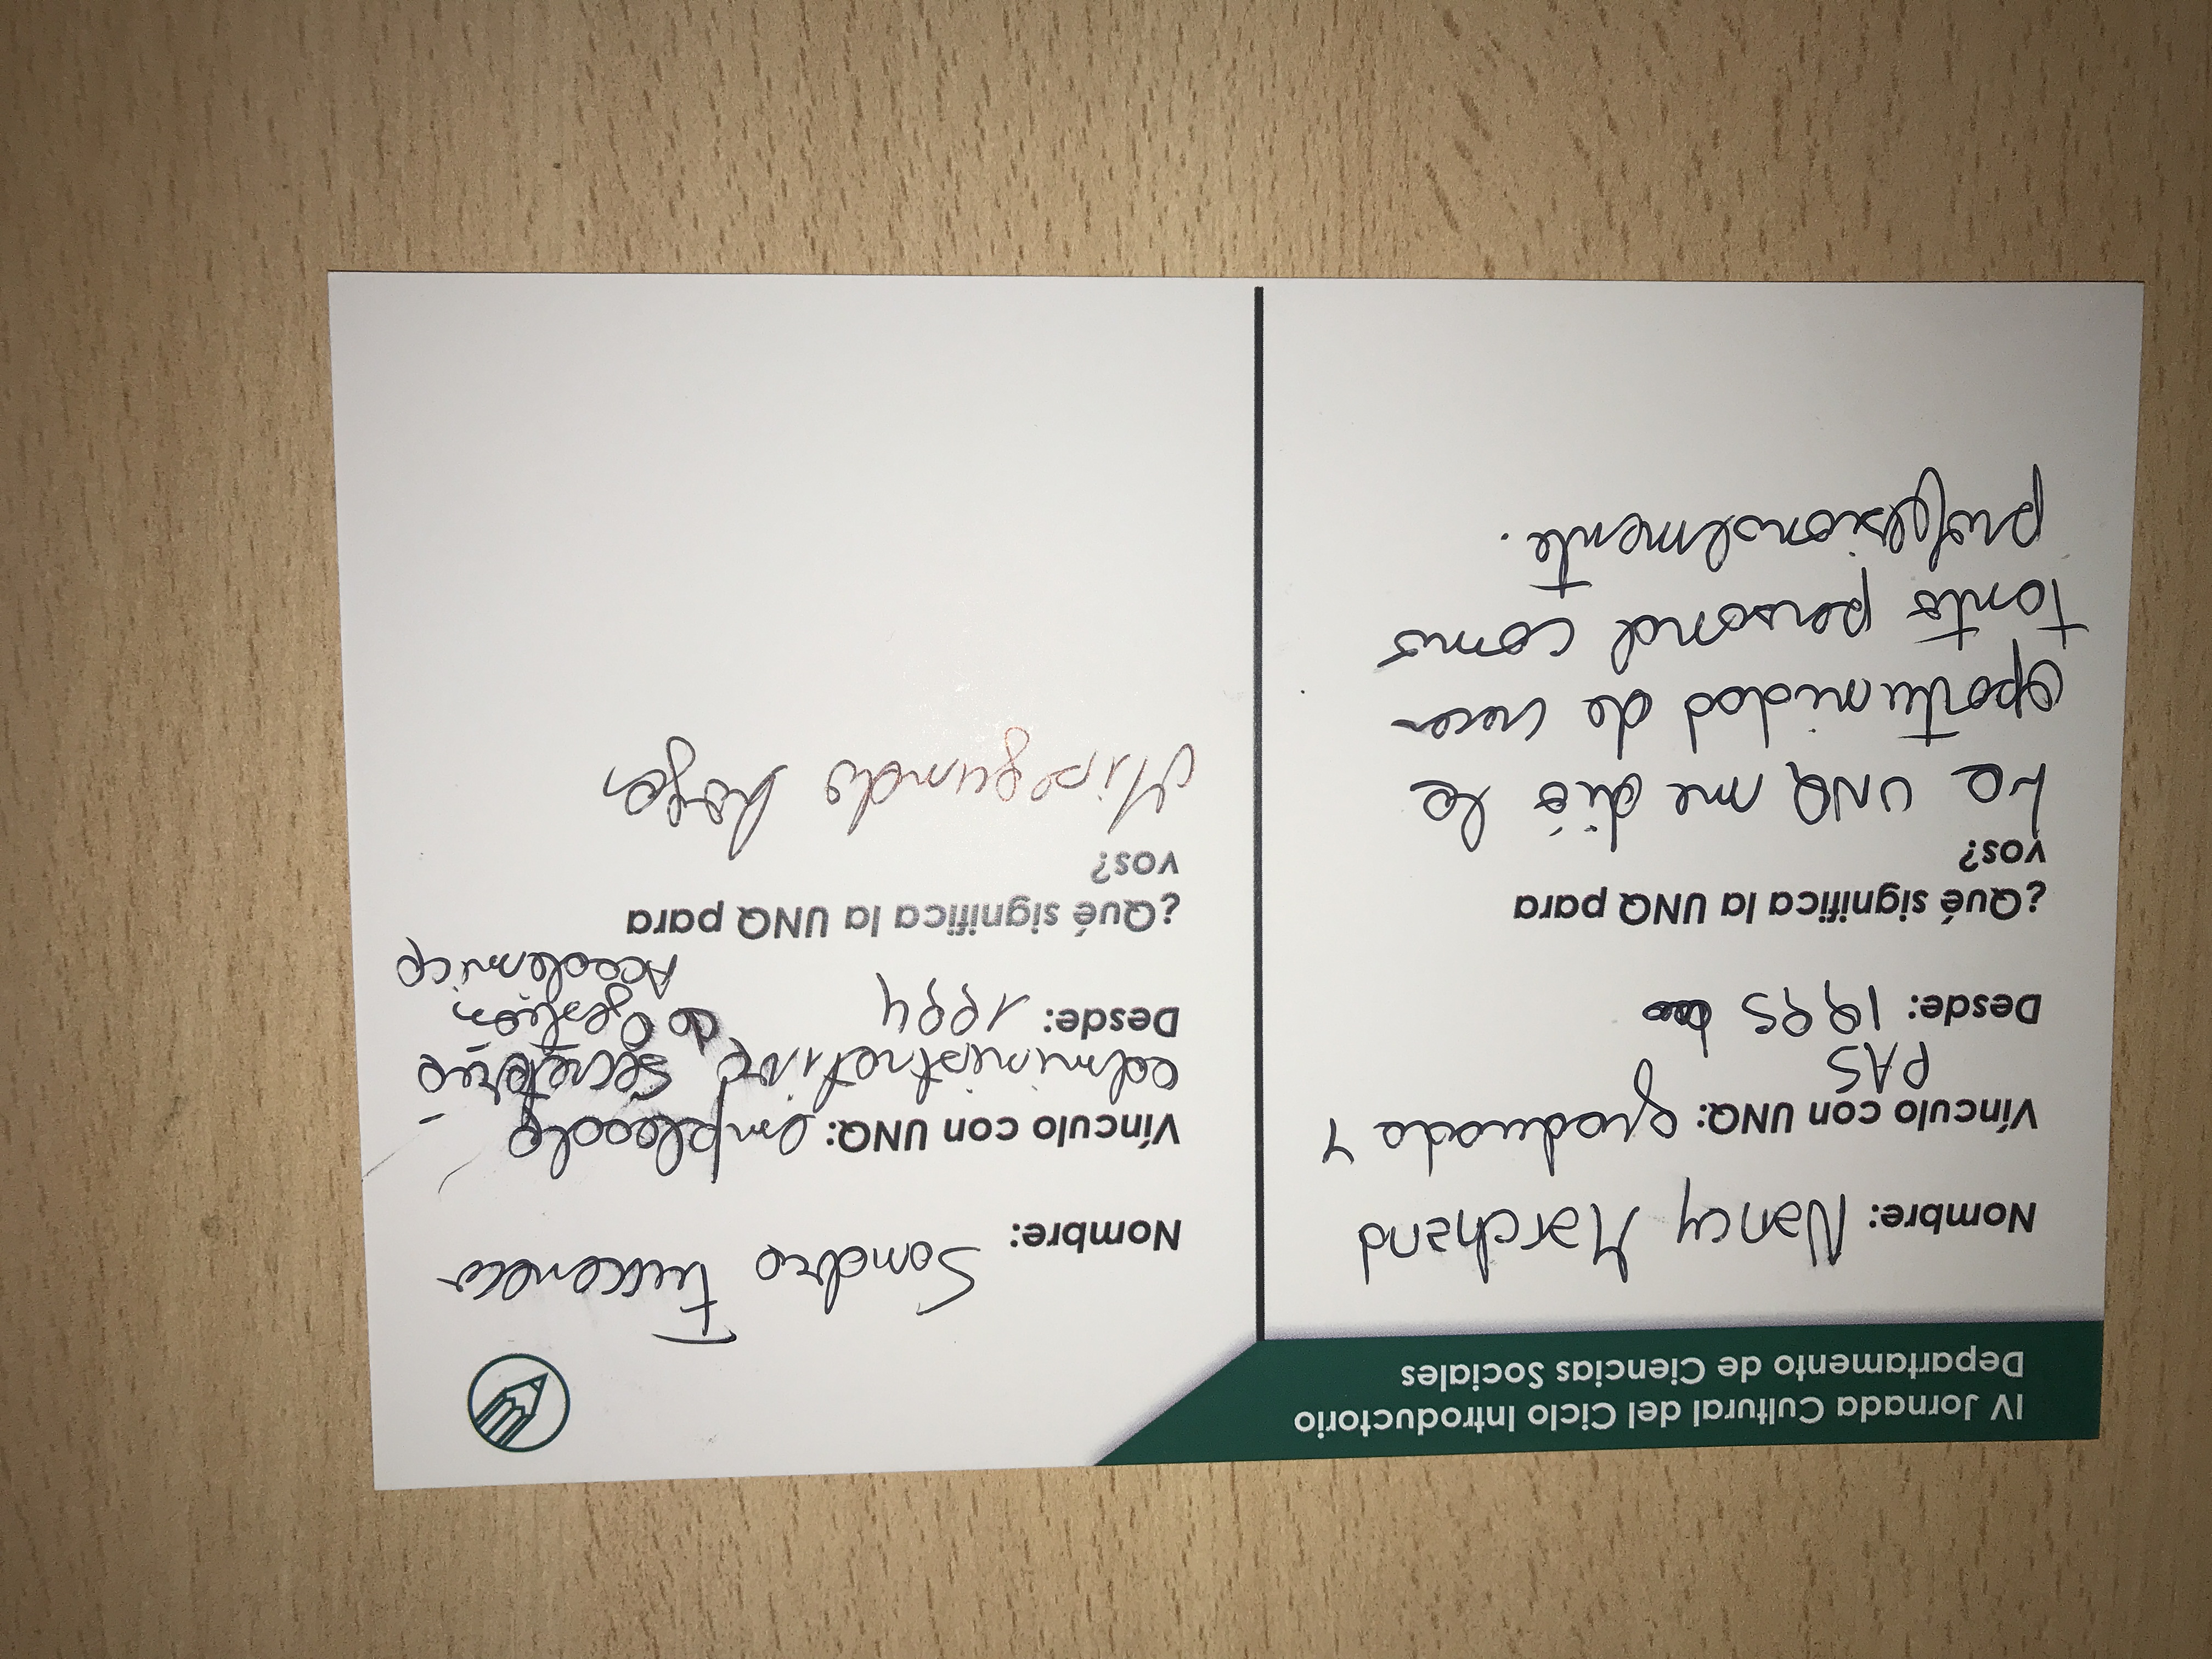 IV Jornada Cultural del Ciclo Introductorio
Departamento de Ciencias Sociales
Nombre: Nancy Marchand
Vínculo con UNQ: graduada y
PAS
Desde: 1995
¿Qué significa la UNQ para
vos?
La UNQ me dió la
oportunidad de crecer
tanto personal como
profesionalmente.
Nombre: Sandra
Vínculo con UNQ: empleada
administrativa Secretaría
de Gestión
Académica
Desde: 1994
¿Qué significa la UNQ para
vos?
Mi segundo hogar